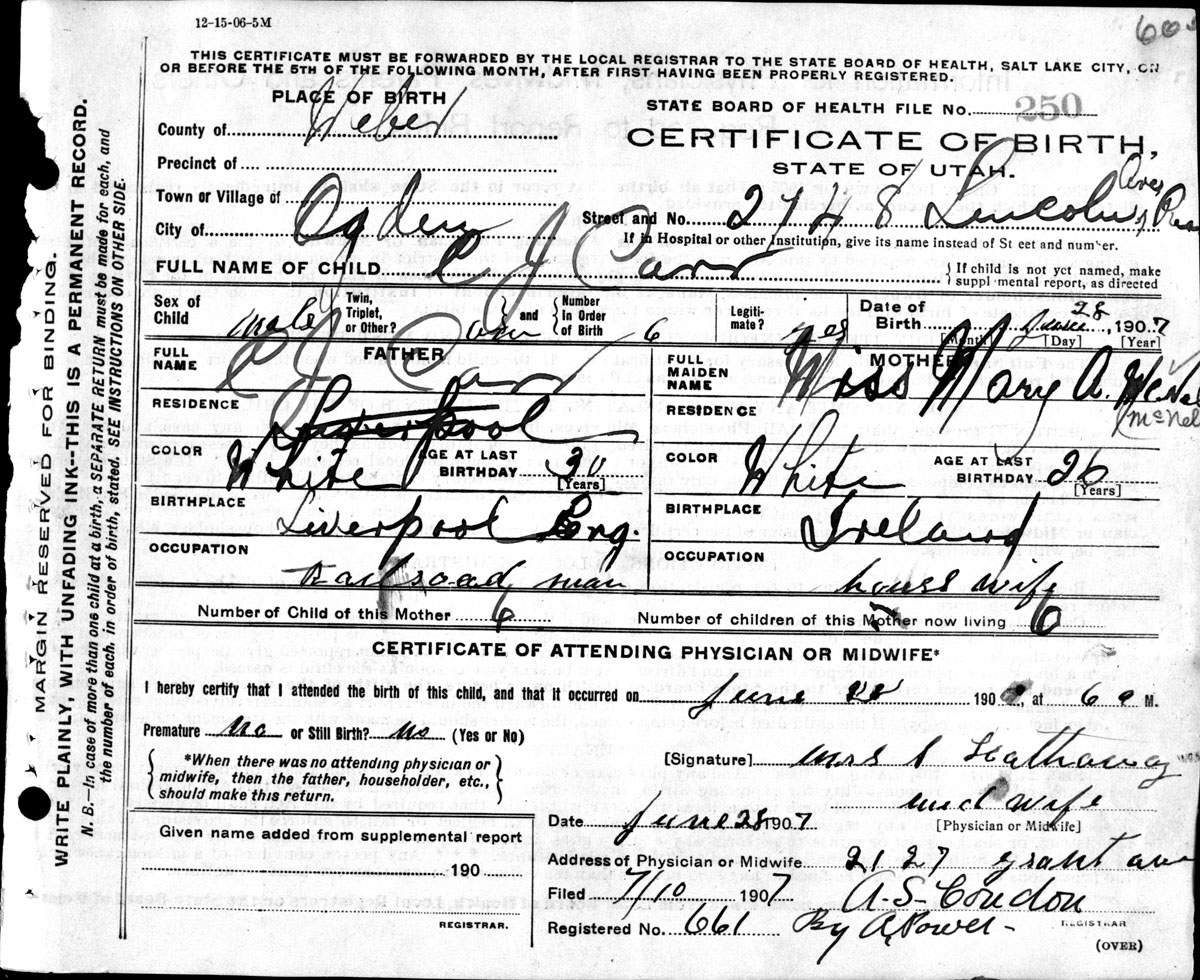 12-15-06-5M
THIS CERTIFICATE MUST BE FORWARDED BY THE LOCAL REGISTRAR TO THE STATE BOARD OF HEALTH, SALT LAKE CITY, ON
OR BEFORE THE 5TH OF THE FOLLOWING MONTH, AFTER FIRST HAVING BEEN PROPERLY REGISTERED.
PLACE OF BIRTH
STATE BOARD OF HEALTH FILE No. 250
County of Weber
CERTIFICATE OF BIRTH,
STATE OF UTAH.
Precinct of
Town or Village of
City of Ogden Street and No. 2748 Lincoln Ave
If in Hospital or other Institution, give its name instead of St eet and number.
FULL NAME OF CHILD C J Carr
If child is not yet named, make
suppl mental report, as directed
Sex of Child male Twin, Triplet, or Other? and Number In Order of Birth 6 Legiti-mate? yes Date of Birth June 28 1907
[Month] [Day] [Year]
FATHER
MOTHER
FULL NAME C J Carr
FULL MAIDEN NAME Miss Mary A.
RESIDENCE Liverpool
RESIDENCE
COLOR White AGE AT LAST BIRTHDAY 30 [Years]
COLOR White AGE AT LAST BIRTHDAY 26 [Years]
BIRTHPLACE Liverpool Eng.
BIRTHPLACE Ireland
OCCUPATION Railroad man
OCCUPATION house wife
Number of Child of this Mother 6 Number of children of this Mother now living 6
CERTIFICATE OF ATTENDING PHYSICIAN OR MIDWIFE*
I hereby certify that I attended the birth of this child, and that it occurred on June 28 190 , at 6 a M.
Premature no or Still Birth? no (Yes or No)
*When there was no attending physician or
midwife, then the father, householder, etc.,
should make this return.
[Signature] Mrs S Hathaway
mid wife
[Physician or Midwife]
Date June 28 1907
Given name added from supplemental report
190
REGISTRAR.
Address of Physician or Midwife 2127 Grant ave
Filed 7/10 1907 A. S. Condon
REGISTRAR
Registered No. 661 By A. Power
(OVER)
MARGIN RESERVED FOR BINDING.
WRITE PLAINLY, WITH UNFADING INK---THIS IS A PERMANENT RECORD.
N. B.--In case of more than one child at a birth, a SEPARATE RETURN must be made for each, and
the number of each, in order of birth, stated. SEE INSTRUCTIONS ON OTHER SIDE.